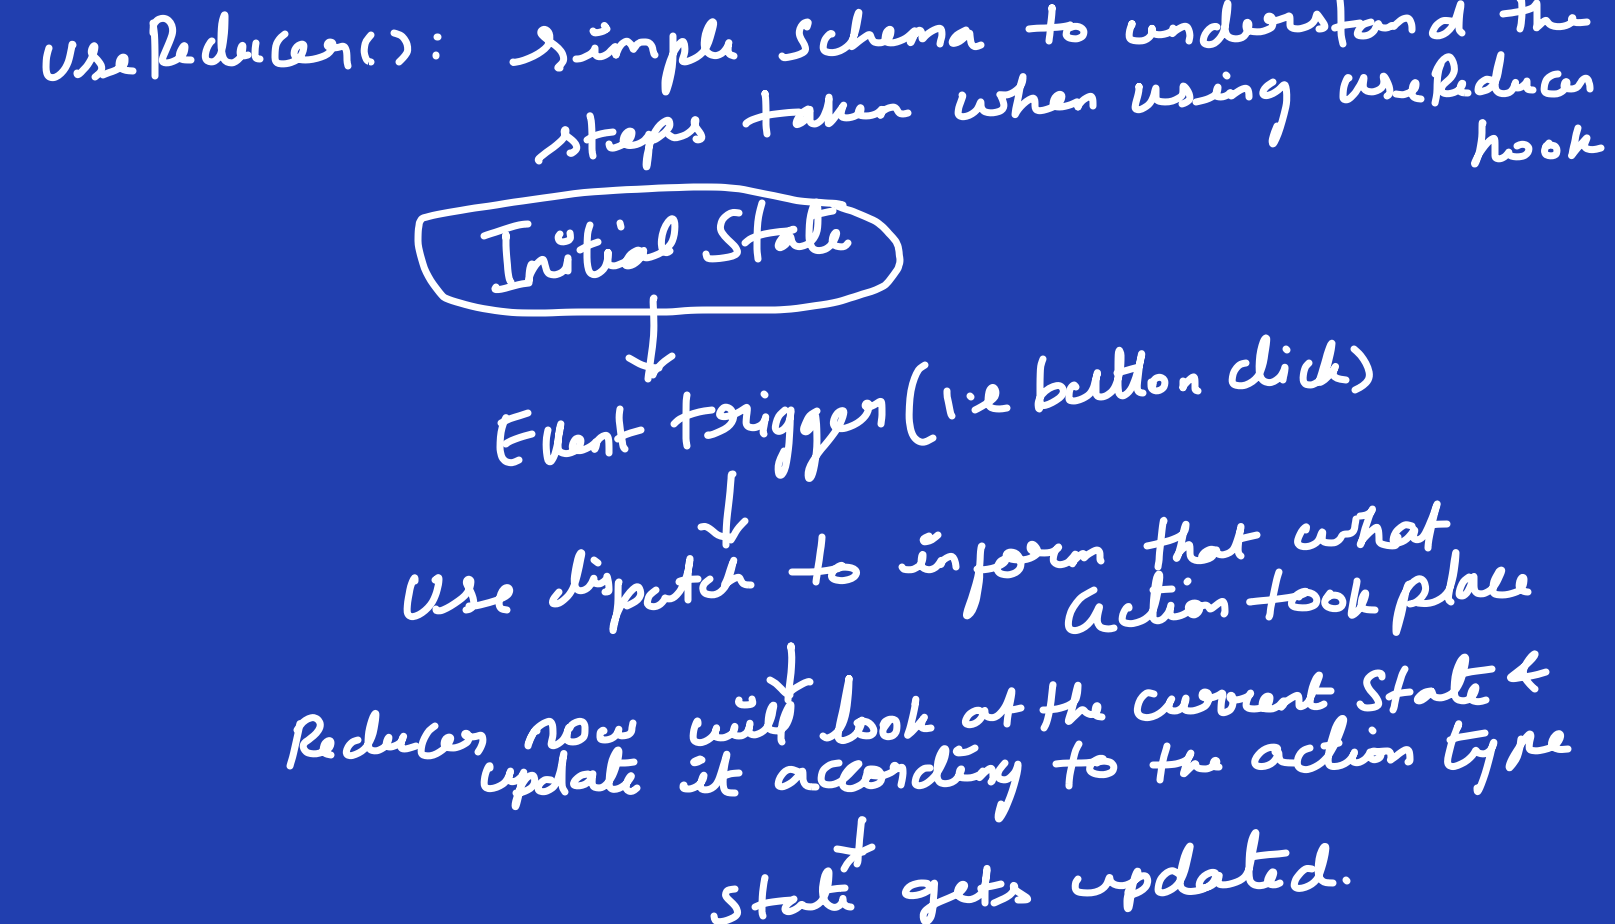 useReducer(): simple schema to understand the
steps taken when using useReducer
hook
Initial State
Event trigger (i.e button click)
Use dispatch to inform that what
action took place
Reducer now will look at the current state &
update it according to the action type
state gets updated.